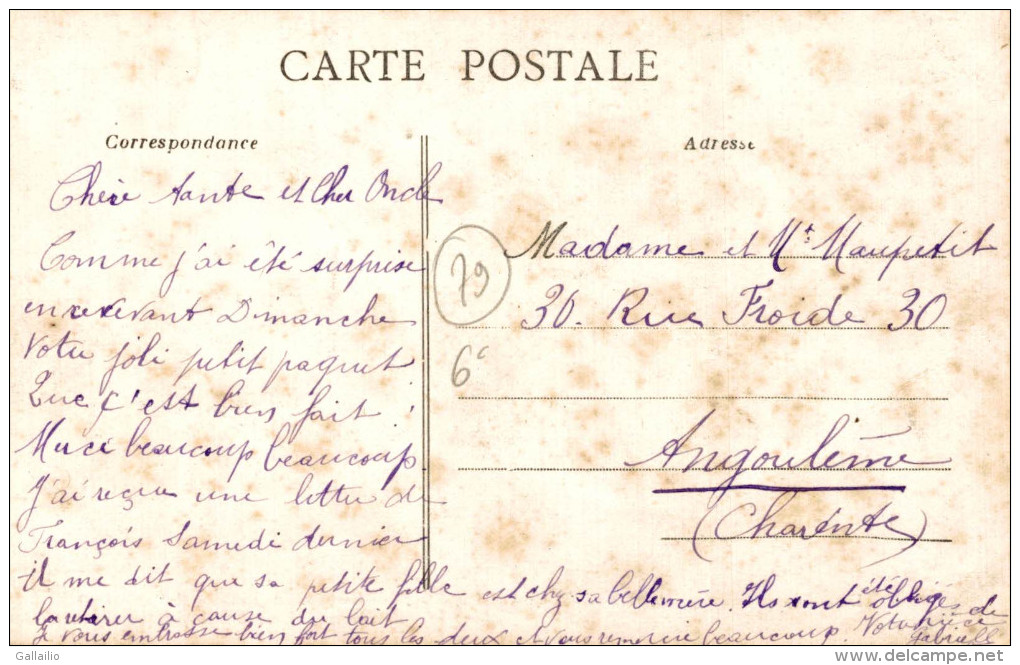 CARTE POSTALE
Correspondance
Adresse
Chère tante et Cher Oncle
Comme j'ai été surprise
en recevant Dimanche
Votre joli petit paquet
Que c'est bien fait !
Merci beaucoup beaucoup
J'ai reçu une lettre de
François Samedi dernier
il me dit que sa petite fille est chez sa bellemère. Ils ont été obligés de
la retirer à cause du lait
Je vous embrasse bien fort tous les deux et vous remercie beaucoup. Votre nièce
Gabrielle
79
6c
Madame et Mr Maupetit
30. Rue Froide 30
Angoulême
(Charente)
Gallailio
delcampe.net